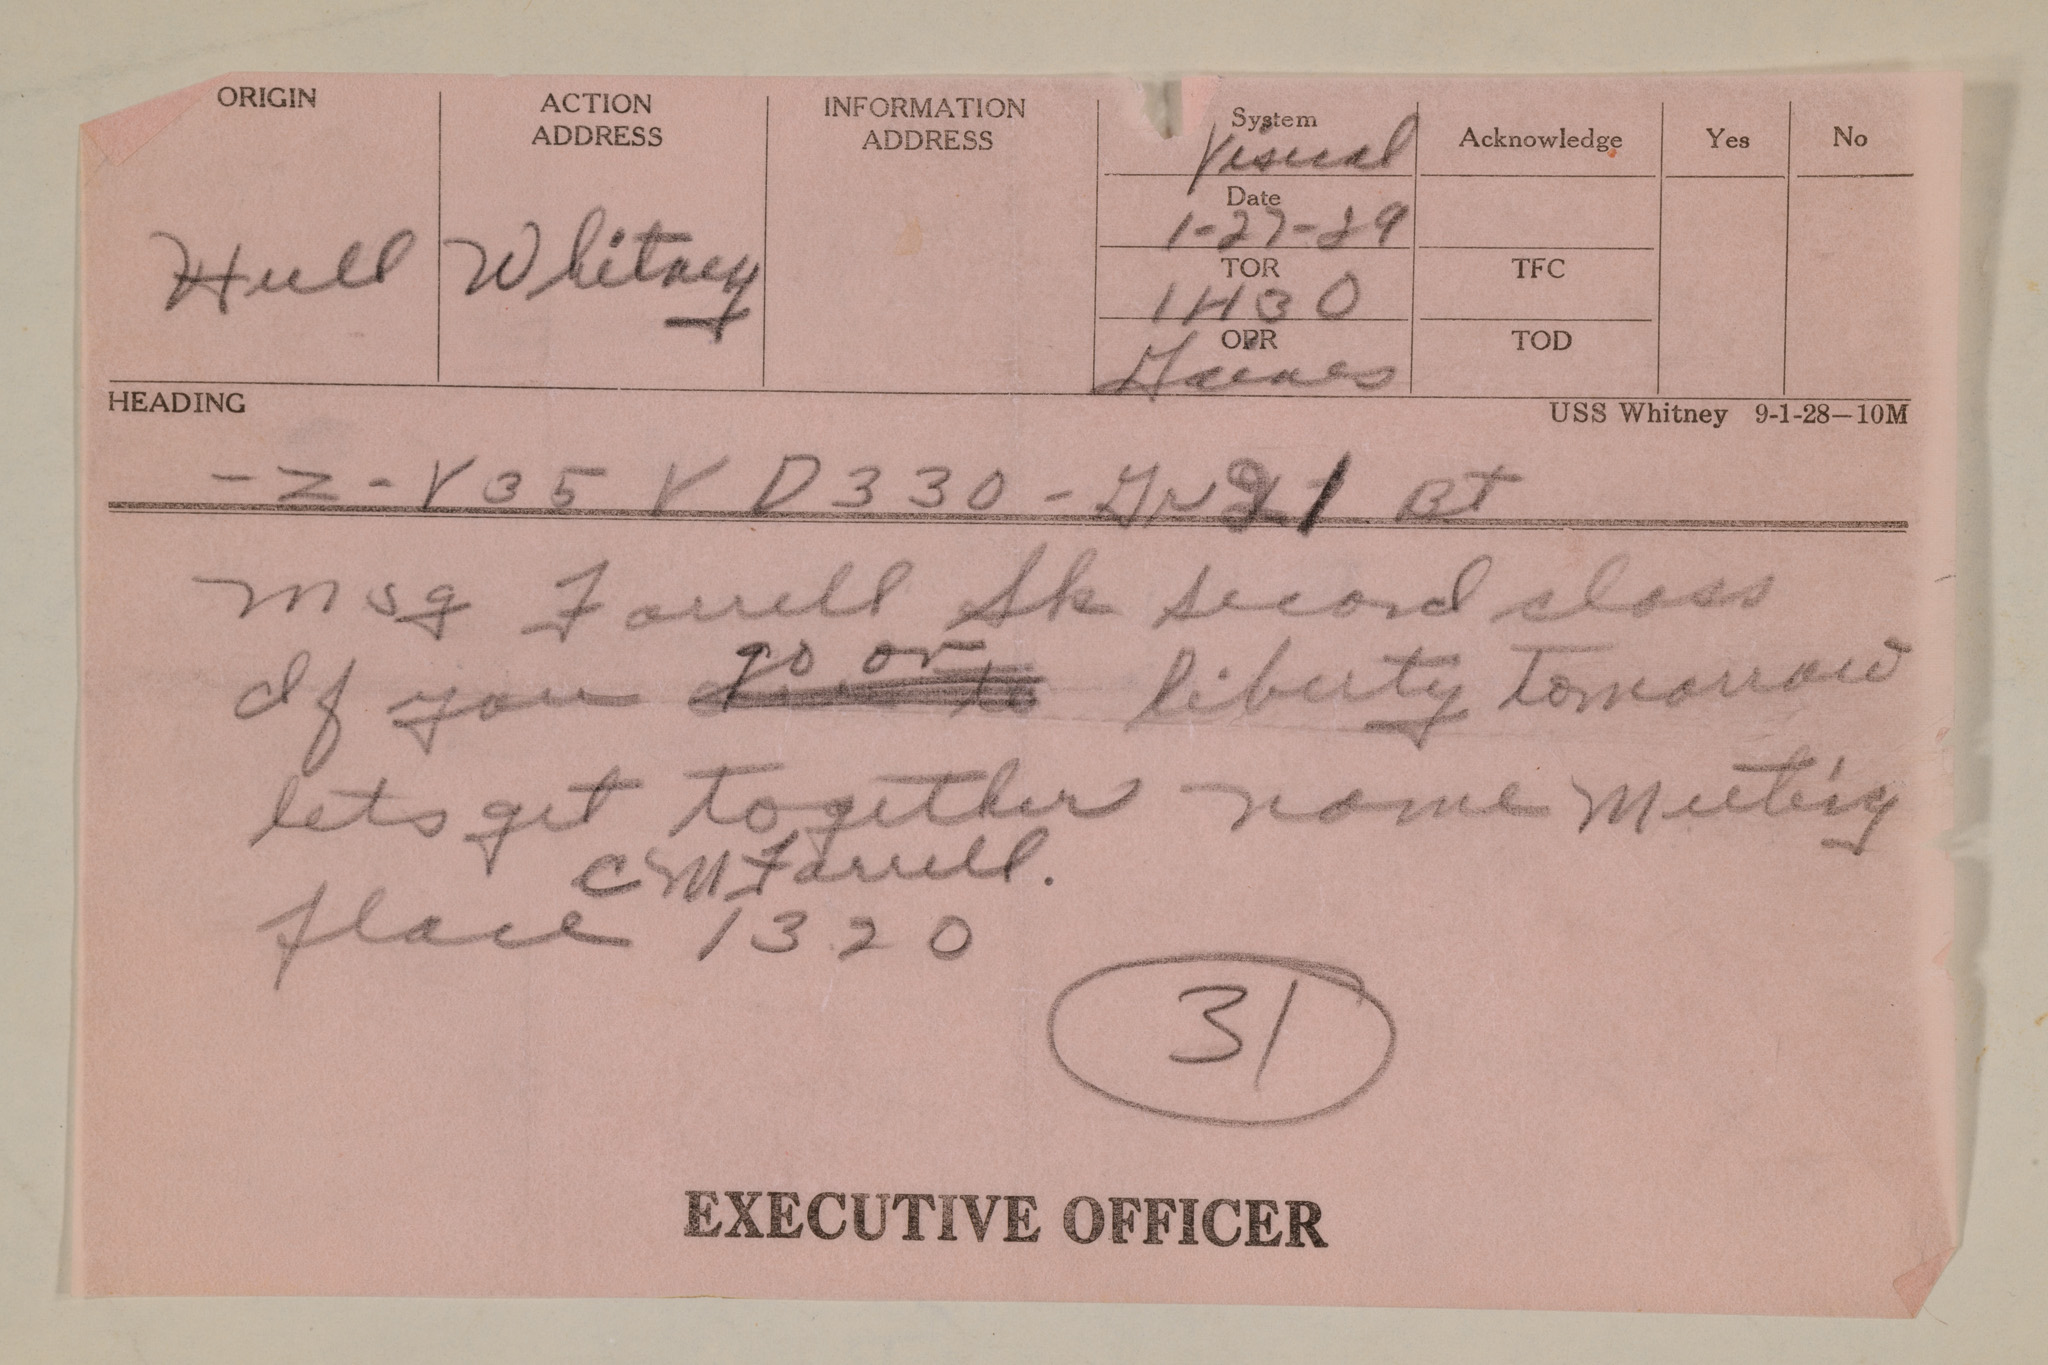 ORIGIN
ACTION
ADDRESS
INFORMATION
ADDRESS
System
Visual
Acknowledge
Yes
No
Date
1-27-29
TOR
1430
TFC
OPR
TOD
Hull
Whitney
HEADING
USS Whitney 9-1-28—10M
-Z- V35 V D330 - Gr 21 Bt
Msg Farrell Sk second class
go on
If you to liberty tomorrow
lets get together name Meeting
C M Farrell.
place 1320
31
EXECUTIVE OFFICER